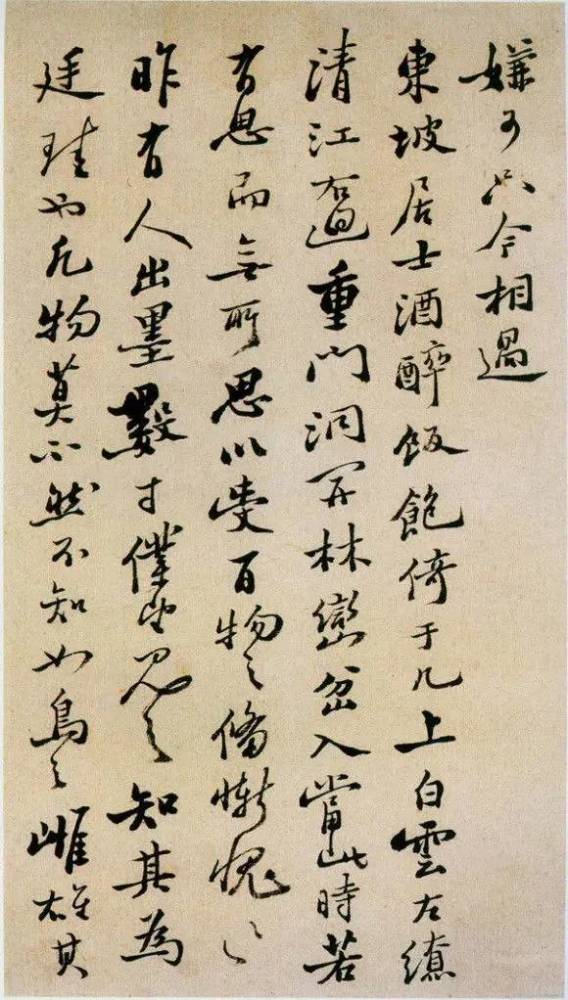 嫌可只今相過
東坡居士酒醉飯飽倚于几上白雲左繚
清江右迴重門洞開林巒岔入當此時若
有思而無所思以受百物之備慚愧々
昨有人出墨數寸僕望見之知其為
廷珪也凡物莫不然不知如烏之雌雄其